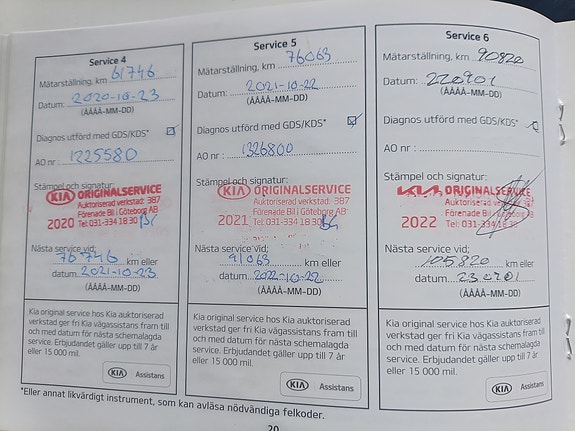 Service 4
Mätarställning, km 61746
Datum: 2020-10-23
(ÅÅÅÅ-MM-DD)
Diagnos utförd med GDS/KDS*
AO nr: 1225580
Stämpel och signatur:
KIA ORIGINALSERVICE
Auktoriserad verkstad: 387
Förenade Bil i Göteborg AB
2020 Tel: 031-334 18 30
Nästa service vid;
76746 km eller
datum 2021-10-23
(ÅÅÅÅ-MM-DD)
Kia original service hos Kia auktoriserad
verkstad ger fri Kia vägassistans fram till
och med datum för nästa schemalagda
service. Erbjudandet gäller upp till 7 år
eller 15 000 mil.
KIA Assistans
Service 5
Mätarställning, km 76063
Datum: 2021-10-22
(ÅÅÅÅ-MM-DD)
Diagnos utförd med GDS/KDS*
AO nr: 1326800
Stämpel och signatur:
KIA ORIGINALSERVICE
Auktoriserad verkstad: 387
Förenade Bil i Göteborg AB
2021 Tel: 031-334 18 30
Nästa service vid;
91063 km eller
datum 2022-10-22
(ÅÅÅÅ-MM-DD)
Kia original service hos Kia auktoriserad
verkstad ger fri Kia vägassistans fram till
och med datum för nästa schemalagda
service. Erbjudandet gäller upp till 7 år
eller 15 000 mil.
KIA Assistans
Service 6
Mätarställning, km 90820
Datum: 220901
(ÅÅÅÅ-MM-DD)
Diagnos utförd med GDS/KDS*
AO nr:
Stämpel och signatur:
KIA ORIGINALSERVICE
Auktoriserad verkstad: 387
Förenade Bil i Göteborg AB
2022 Tel: 031-334 18 30
Nästa service vid;
105820 km eller
datum 230901
(ÅÅÅÅ-MM-DD)
Kia original service hos Kia auktoriserad
verkstad ger fri Kia vägassistans fram till
och med datum för nästa schemalagda
service. Erbjudandet gäller upp till 7 år
eller 15 000 mil.
KIA Assistans
*Eller annat likvärdigt instrument, som kan avläsa nödvändiga felkoder.
20